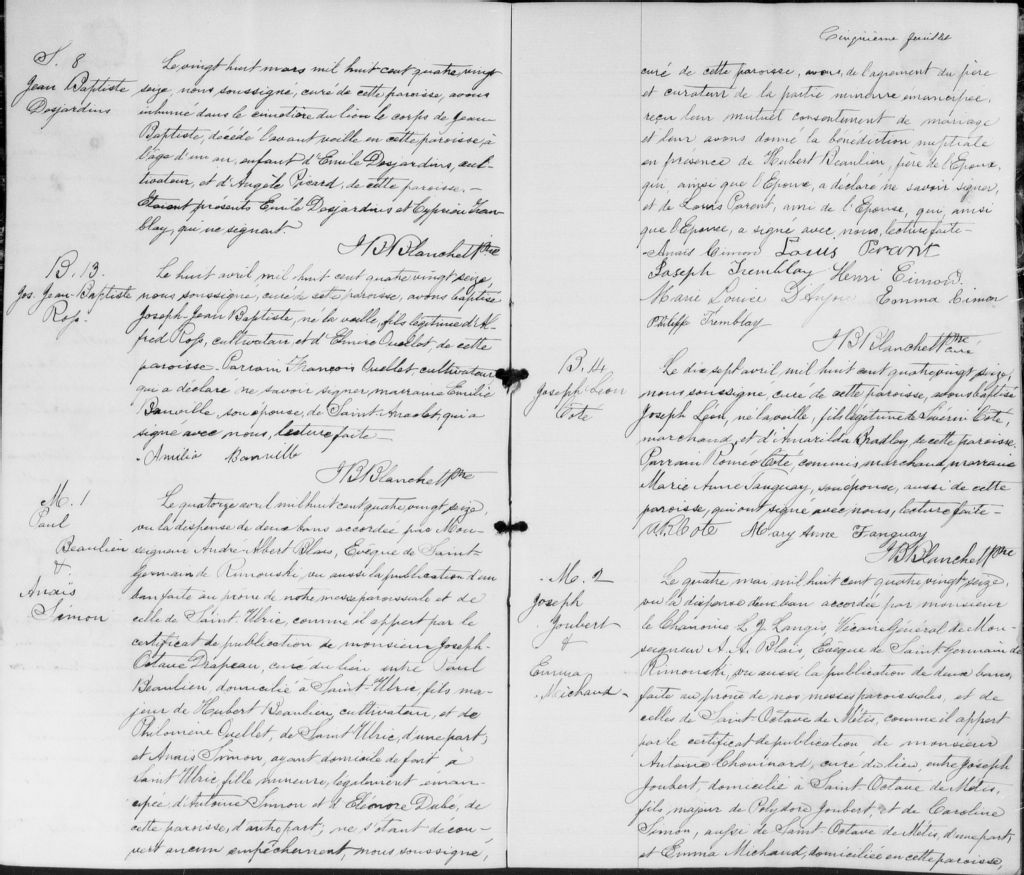 S. 8
Jean Baptiste
Desjardins
Le vingt huit mars mil huit cent quatre vingt
seize, nous soussigné, curé de cette paroisse, avons
inhumé dans le cimetière du lieu le corps de Jean
Baptiste, décédé l'avant veille en cette paroisse, à
l'âge d'un an, enfant d'Emile Desjardins, cul-
tivateur, et d'Angèle Picard, de cette paroisse. -
Etaient présents Emile Desjardins et Cyprien Trem-
blay, qui ne signent.
J B Blanchet Ptre
B. 13.
Jos. Jean-Baptiste
Ross.
Le huit avril mil huit cent quatre vingt seize,
nous soussigné, curé de cette paroisse, avons baptisé
Joseph-Jean Baptiste, né la veille, fils légitime d'Al-
fred Ross, cultivateur, et d'Elmire Ouellet, de cette
paroisse. Parrain François Ouellet cultivateur
qui a déclaré ne savoir signer, marraine Emilie
Banville, son épouse, de Saint Anaclet, qui a
signé avec nous, lecture faite -
Amilia Banville
J B Blanchet Ptre
M. 1
Paul
Beaulieu
&
Anaïs
Simon
Le quatorze avril mil huit cent quatre vingt seize,
vu la dispense de deux bans accordée par Mon-
seigneur André-Albert Blais, Evêque de Saint-
Germain de Rimouski, vu aussi la publication d'un
ban faite au prône de notre messe paroissiale et de
celle de Saint-Ulric, comme il appert par le
certificat de publication de monsieur Joseph-
Octave Drapeau, curé du lieu entre Paul
Beaulieu, domicilié à Saint-Ulric, fils ma-
jeur de Hubert Beaulieu, cultivateur, et de
Philomène Ouellet, de Saint Ulric, d'une part;
et Anaïs Simon, ayant domicile de fait à
Saint Ulric, fille mineure, légalement éman-
cipée, d'Antoine Simon et d'Eléonore Dubé, de
cette paroisse, d'autre part; ne s'étant décou-
vert aucun empêchement, nous soussigné,
Cinquième feuillet
curé de cette paroisse, avons, de l'agrément du père
et curateur de la partie mineure émancipée,
reçu leur mutuel consentement de mariage
et leur avons donné la bénédiction nuptiale
en présence de Hubert Beaulieu, père de l'Epoux,
qui, ainsi que l'Epoux, a déclaré ne savoir signer,
et de Louis Parent, ami de l'Epouse, qui, ainsi
que l'Epouse, a signé avec nous, lecture faite -
Anaïs Cimon Louis Perant
Joseph Tremblay Henri Cimon
Marie Louise D'Anjou Emma Cimon
Philippe Tremblay
J B Blanchet Ptre
curé
B. 14
Joseph Léon
Coté
Le dix sept avril, mil huit cent quatre vingt seize,
nous soussigné, curé de cette paroisse, avons baptisé
Joseph Léon, né la veille, fils légitime de Sévérin Coté,
marchand, et d'Amarilda Bradley, de cette paroisse.
Parrain Roméo Coté, commis marchand, marraine
Marie Anne Tanguay, son épouse, aussi de cette
paroisse, qui ont signé avec nous, lecture faite -
Mary Anne Tanguay
J B Blanchet Ptre
M. 2
Joseph
Joubert
&
Emma
Michaud
Le quatre mai mil huit cent quatre vingt seize,
vu la dispense d'un ban accordée par monsieur
le Chanoine L. J. Langis, Vicaire Général de Mon-
seigneur A. A. Blais, Evêque de Saint-Germain de
Rimouski, vu aussi la publication de deux bans,
faite au prône de nos messes paroissiales, et de
celles de Saint-Octave de Métis, comme il appert
par le certificat de publication de monsieur
Antoine Chouinard, curé du lieu, entre Joseph
Joubert, domicilié à Saint Octave de Métis,
fils majeur de Polydore Joubert, et de Caroline
Simon, aussi de Saint-Octave de Métis, d'une part;
et Emma Michaud, domiciliée en cette paroisse,